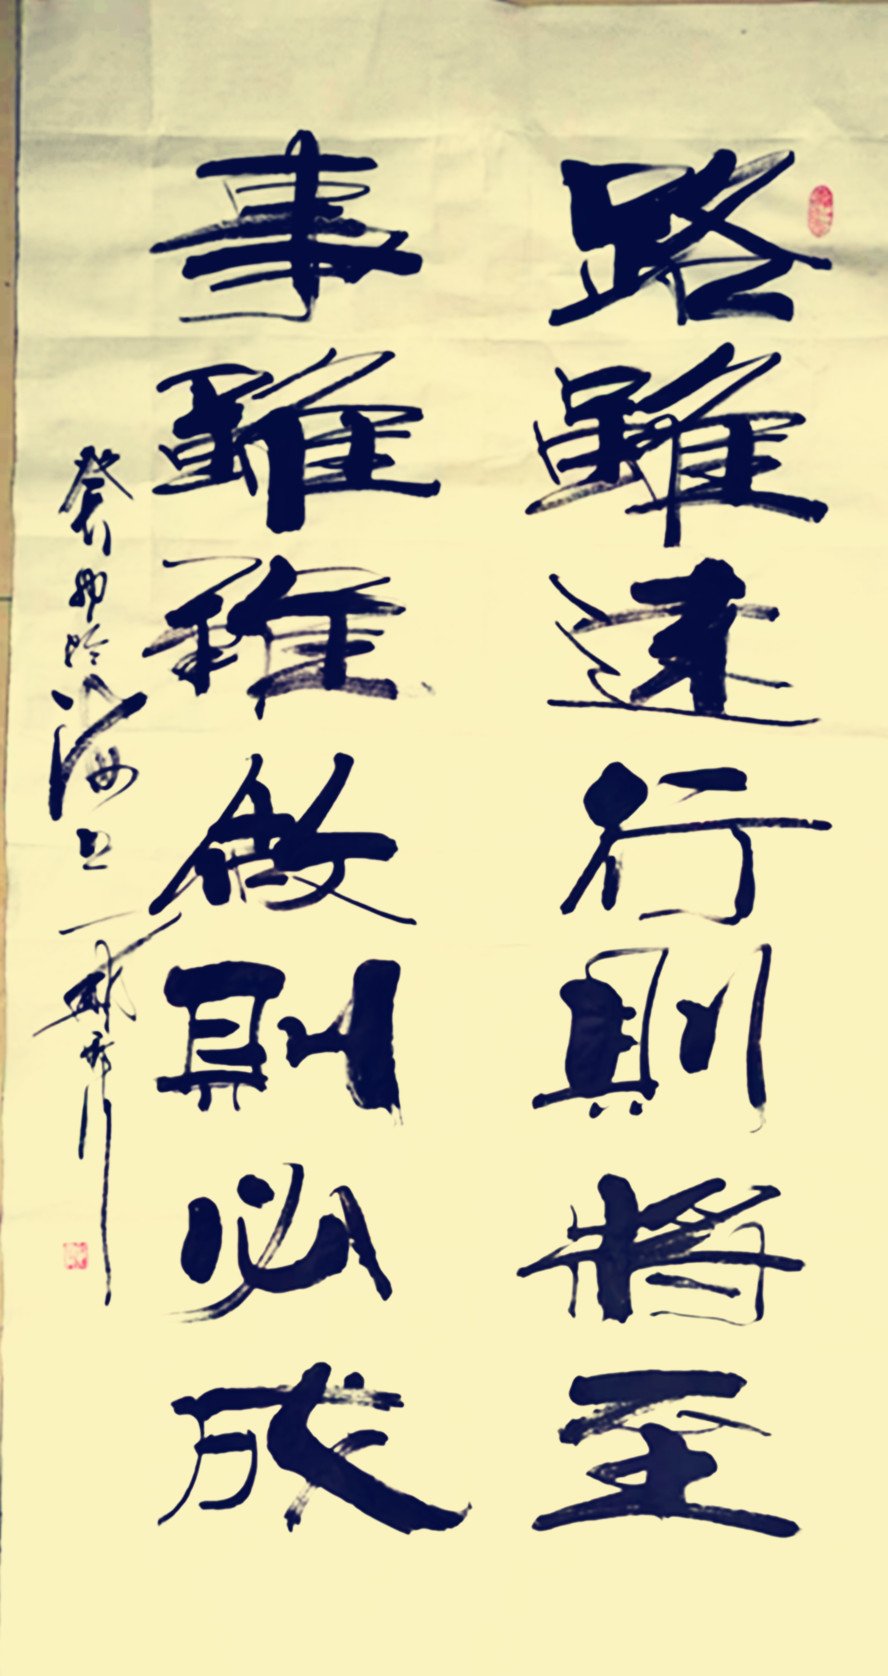 路雖遠行則將至
事雖難做則必成
癸卯於海上